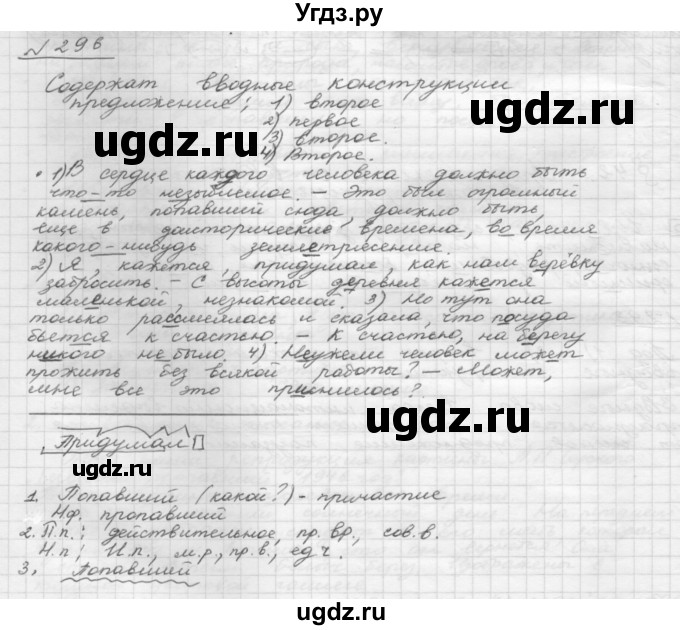 Угдз.ру
№ 296
Содержат вводные конструкции
предложение: 1) второе
2) первое
3) второе.
4) Второе.
• 1) В сердце каждого человека должно быть
что-то незыблемое. – Это был огромный
камень, попавший сюда, должно быть,
еще в доисторические времена, во время
какого-нибудь землетрясения.
2) Я, кажется, придумал, как нам верёвку
забросить. – С высоты деревня кажется
маленькой, незнакомой. 3) Но тут она
только рассмеялась и сказала, что посуда
бьется к счастью. – К счастью, на берегу
никого не было. 4) Неужели человек может
прожить без всякой работы? – Может,
мне все это приснилось?
Придумал
1. Попавший (какой?) - причастие
Н.ф. пропавший
2. П.п.: действительное, пр. вр., сов. в.
Н.п: И.п., м.р, пр.в., ед ч.
3. Попавший
ugdz.ru
ugdz.ru
ugdz.ru
ugdz.ru
ugdz.ru
ugdz.ru
ugdz.ru
ugdz.ru
ugdz.ru
ugdz.ru